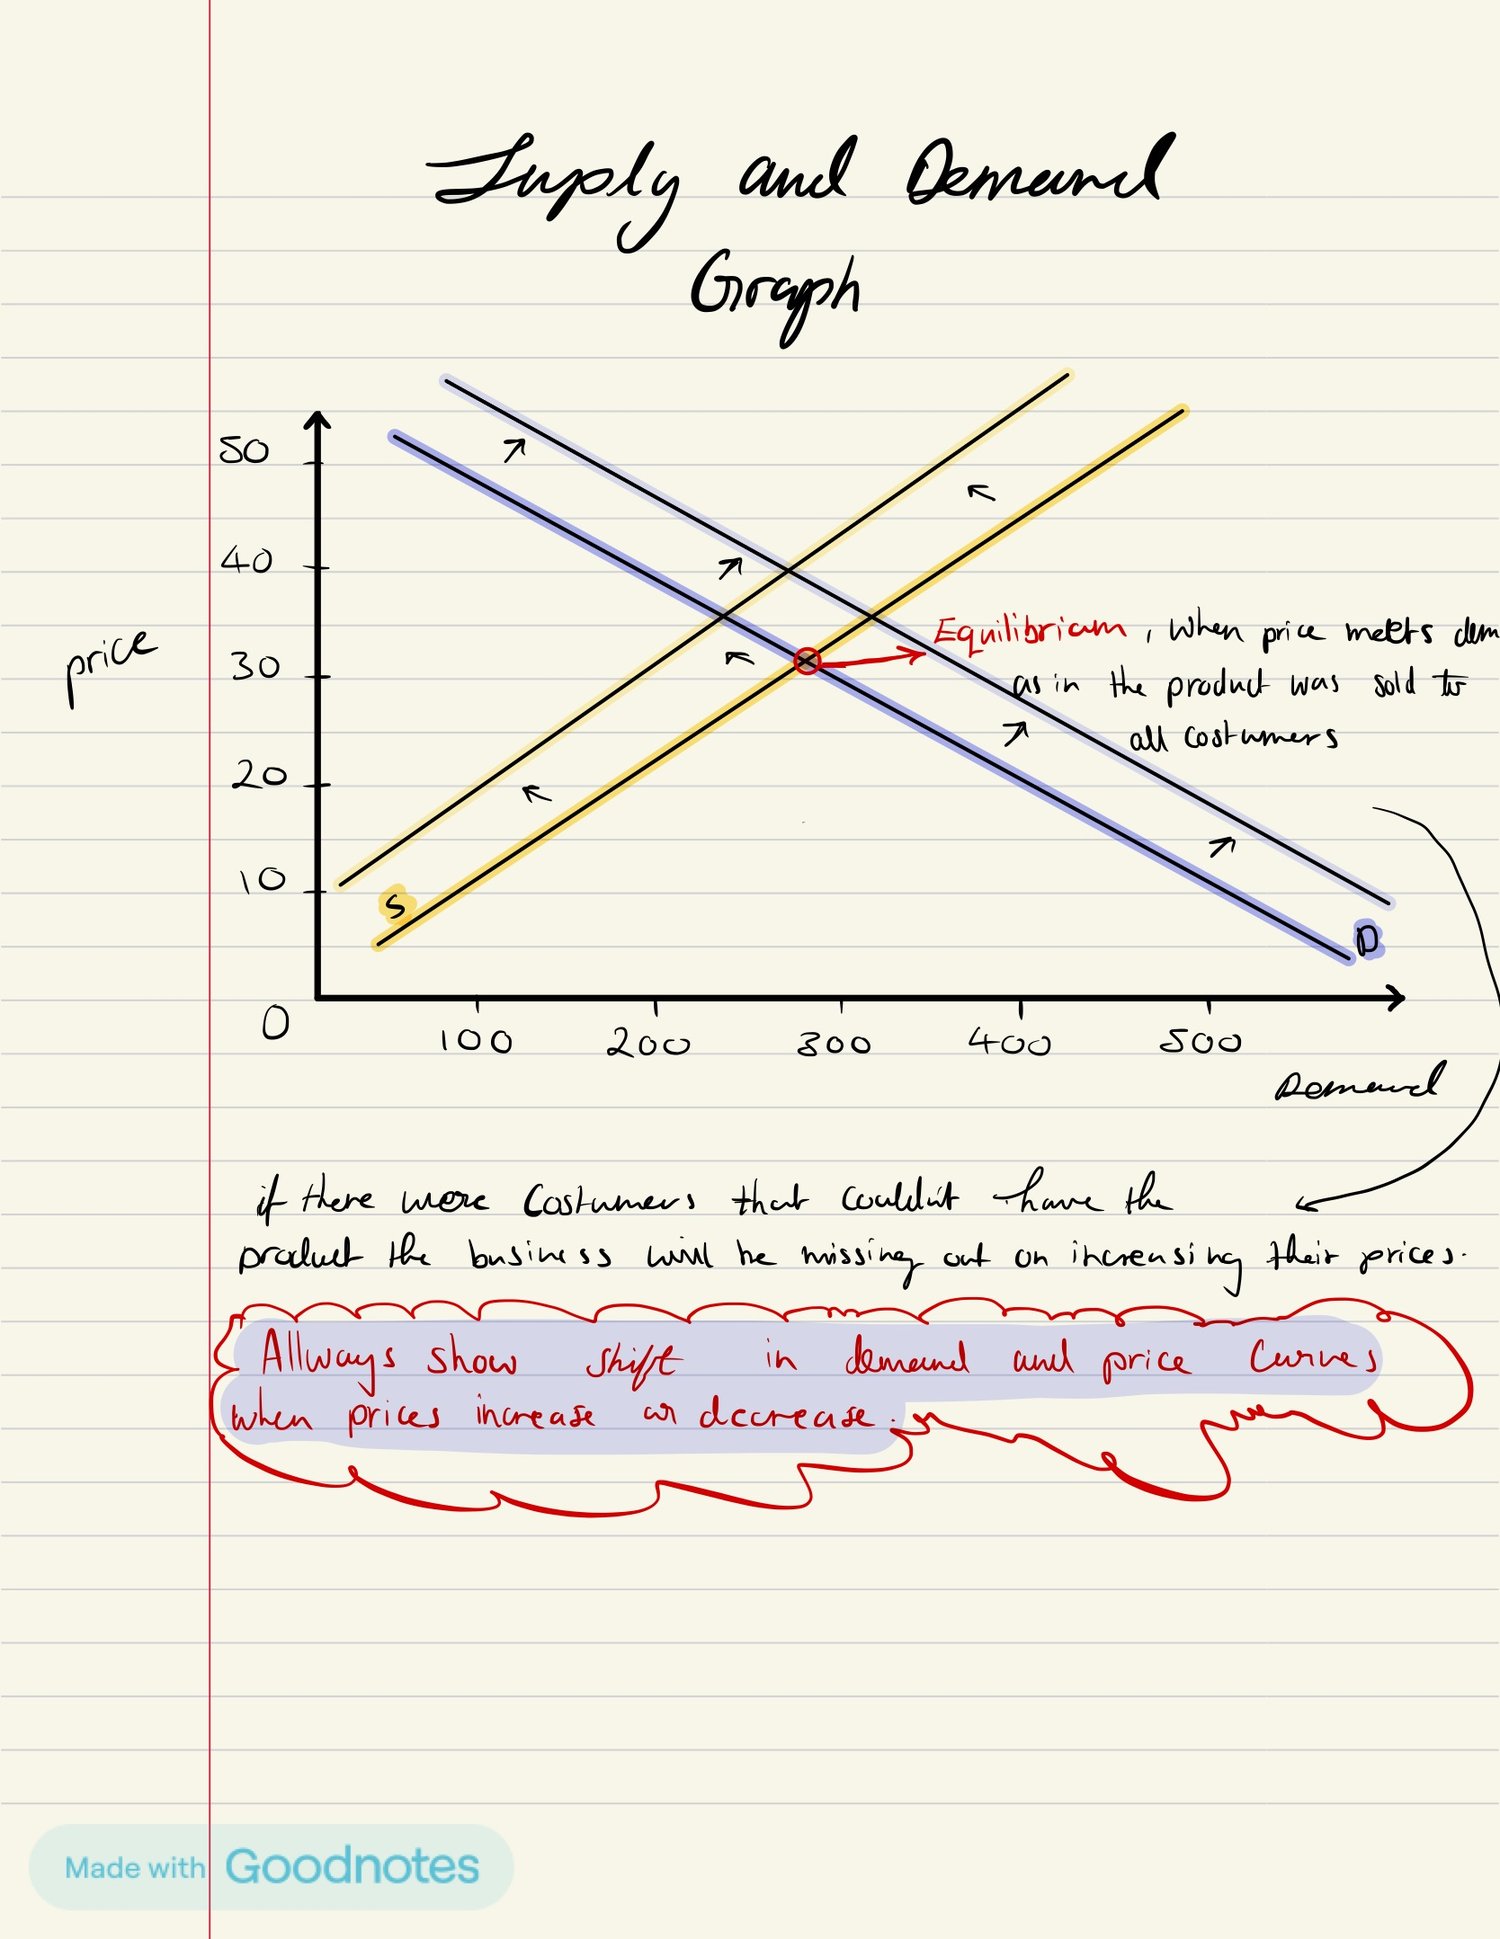 Suply and Demand
Graph
50
40
30
20
10
0
price
S
D
Equilibrium, When price meets dem
as in the product was sold to
all costumers
100 200 300 400 500
Demand
if there were Costumers that couldn't have the
product the business will be missing out on increasing their prices.
Allways show shift in demand and price Curves
when prices increase or decrease.
Made with Goodnotes